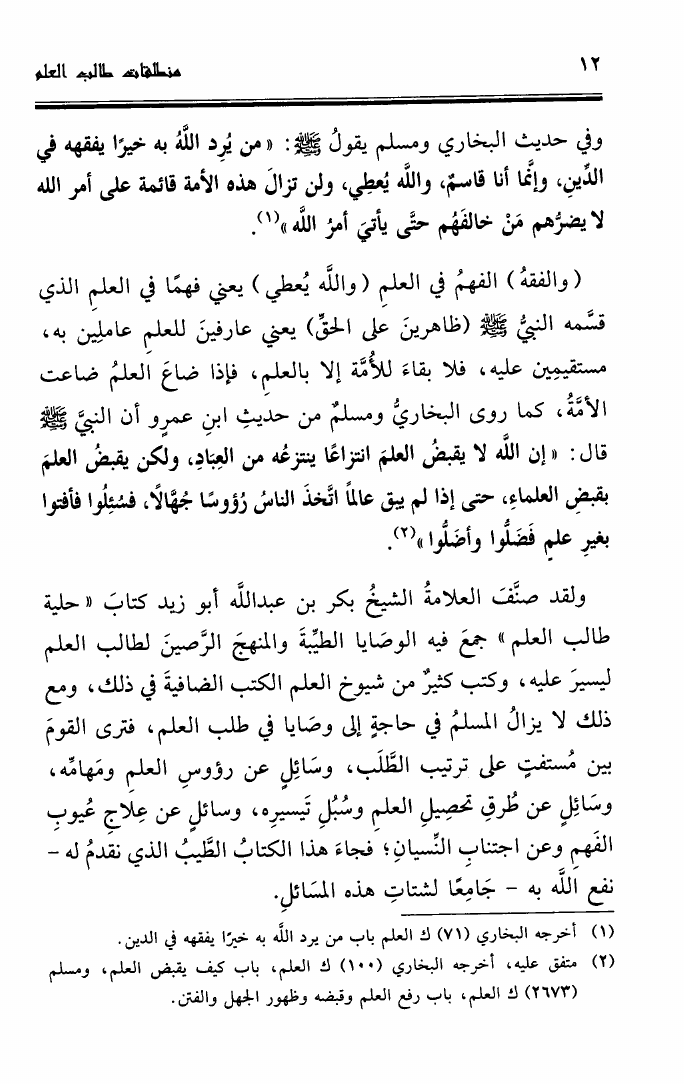 ١٢ منطلقات طالب العلم
وفي حديث البخاري ومسلم يقولُ ﷺ: «من يُرِد اللَّهُ به خيرًا يفقهه في
الدِّينِ، وإنَّما أنا قاسمٌ، واللَّه يُعطِي، ولن تزالَ هذه الأمة قائمة على أمر الله
لا يضرُّهم مَنْ خالفَهُم حتَّى يأتيَ أمرُ اللَّه»(١).
(والفقهُ) الفهمُ في العلمِ (واللَّه يُعطي) يعني فهمًا في العلمِ الذي
قسَّمه النبيُّ ﷺ (ظاهرينَ على الحقِّ) يعني عارفينَ للعلمِ عاملِين به،
مستقيمِين عليه، فلا بقاءَ للأُمَّة إلا بالعلمِ، فإذا ضاعَ العلمُ ضاعت
الأمَّةُ، كما روى البخاريُّ ومسلمٌ من حديثِ ابنِ عمرٍو أن النبيَّ ﷺ
قال: «إن اللَّه لا يقبضُ العلمَ انتزاعًا ينتزعُه من العِبَادِ، ولكن يقبضُ العلمَ
بقبضِ العلماءِ، حتى إذا لم يبق عالماً اتَّخذَ الناسُ رُؤوسًا جُهَّالًا، فسُئِلُوا فأفتوا
بغيرِ علمٍ فَضَلُّوا وأضَلُّوا»(٢).
ولقد صنَّفَ العلامةُ الشيخُ بكر بن عبداللَّه أبو زيد كتابَ «حلية
طالب العلم» جمعَ فيه الوصَايا الطيِّبةَ والمنهجَ الرَّصينَ لطالب العلم
ليسيرَ عليه، وكتب كثيرٌ من شيوخ العلم الكتب الضافيةَ في ذلك، ومع
ذلك لا يزالُ المسلمُ في حاجةٍ إلى وصَايا في طلب العلم، فترى القومَ
بين مُستفتٍ على ترتيب الطَّلَب، وسَائِلٍ عن رؤوسِ العلمِ ومَهامِّه،
وسَائِلٍ عن طُرقِ تحصيلِ العلمِ وسُبُلِ تَيسيرِه، وسائلٍ عن عِلاجِ عُيوبِ
الفَهمِ وعن اجتنابِ النِّسيانِ؛ فجاءَ هذا الكتابُ الطَّيبُ الذي نقدمُ له -
نفع اللَّه به - جَامِعًا لشتاتِ هذه المسَائلِ.
(١) أخرجه البخاري (٧١) ك العلم باب من يرد اللَّه به خيرًا يفقهه في الدين.
(٢) متفق عليه، أخرجه البخاري (١٠٠) ك العلم، باب كيف يقبض العلم، ومسلم
(٢٦٧٣) ك العلم، باب رفع العلم وقبضه وظهور الجهل والفتن.